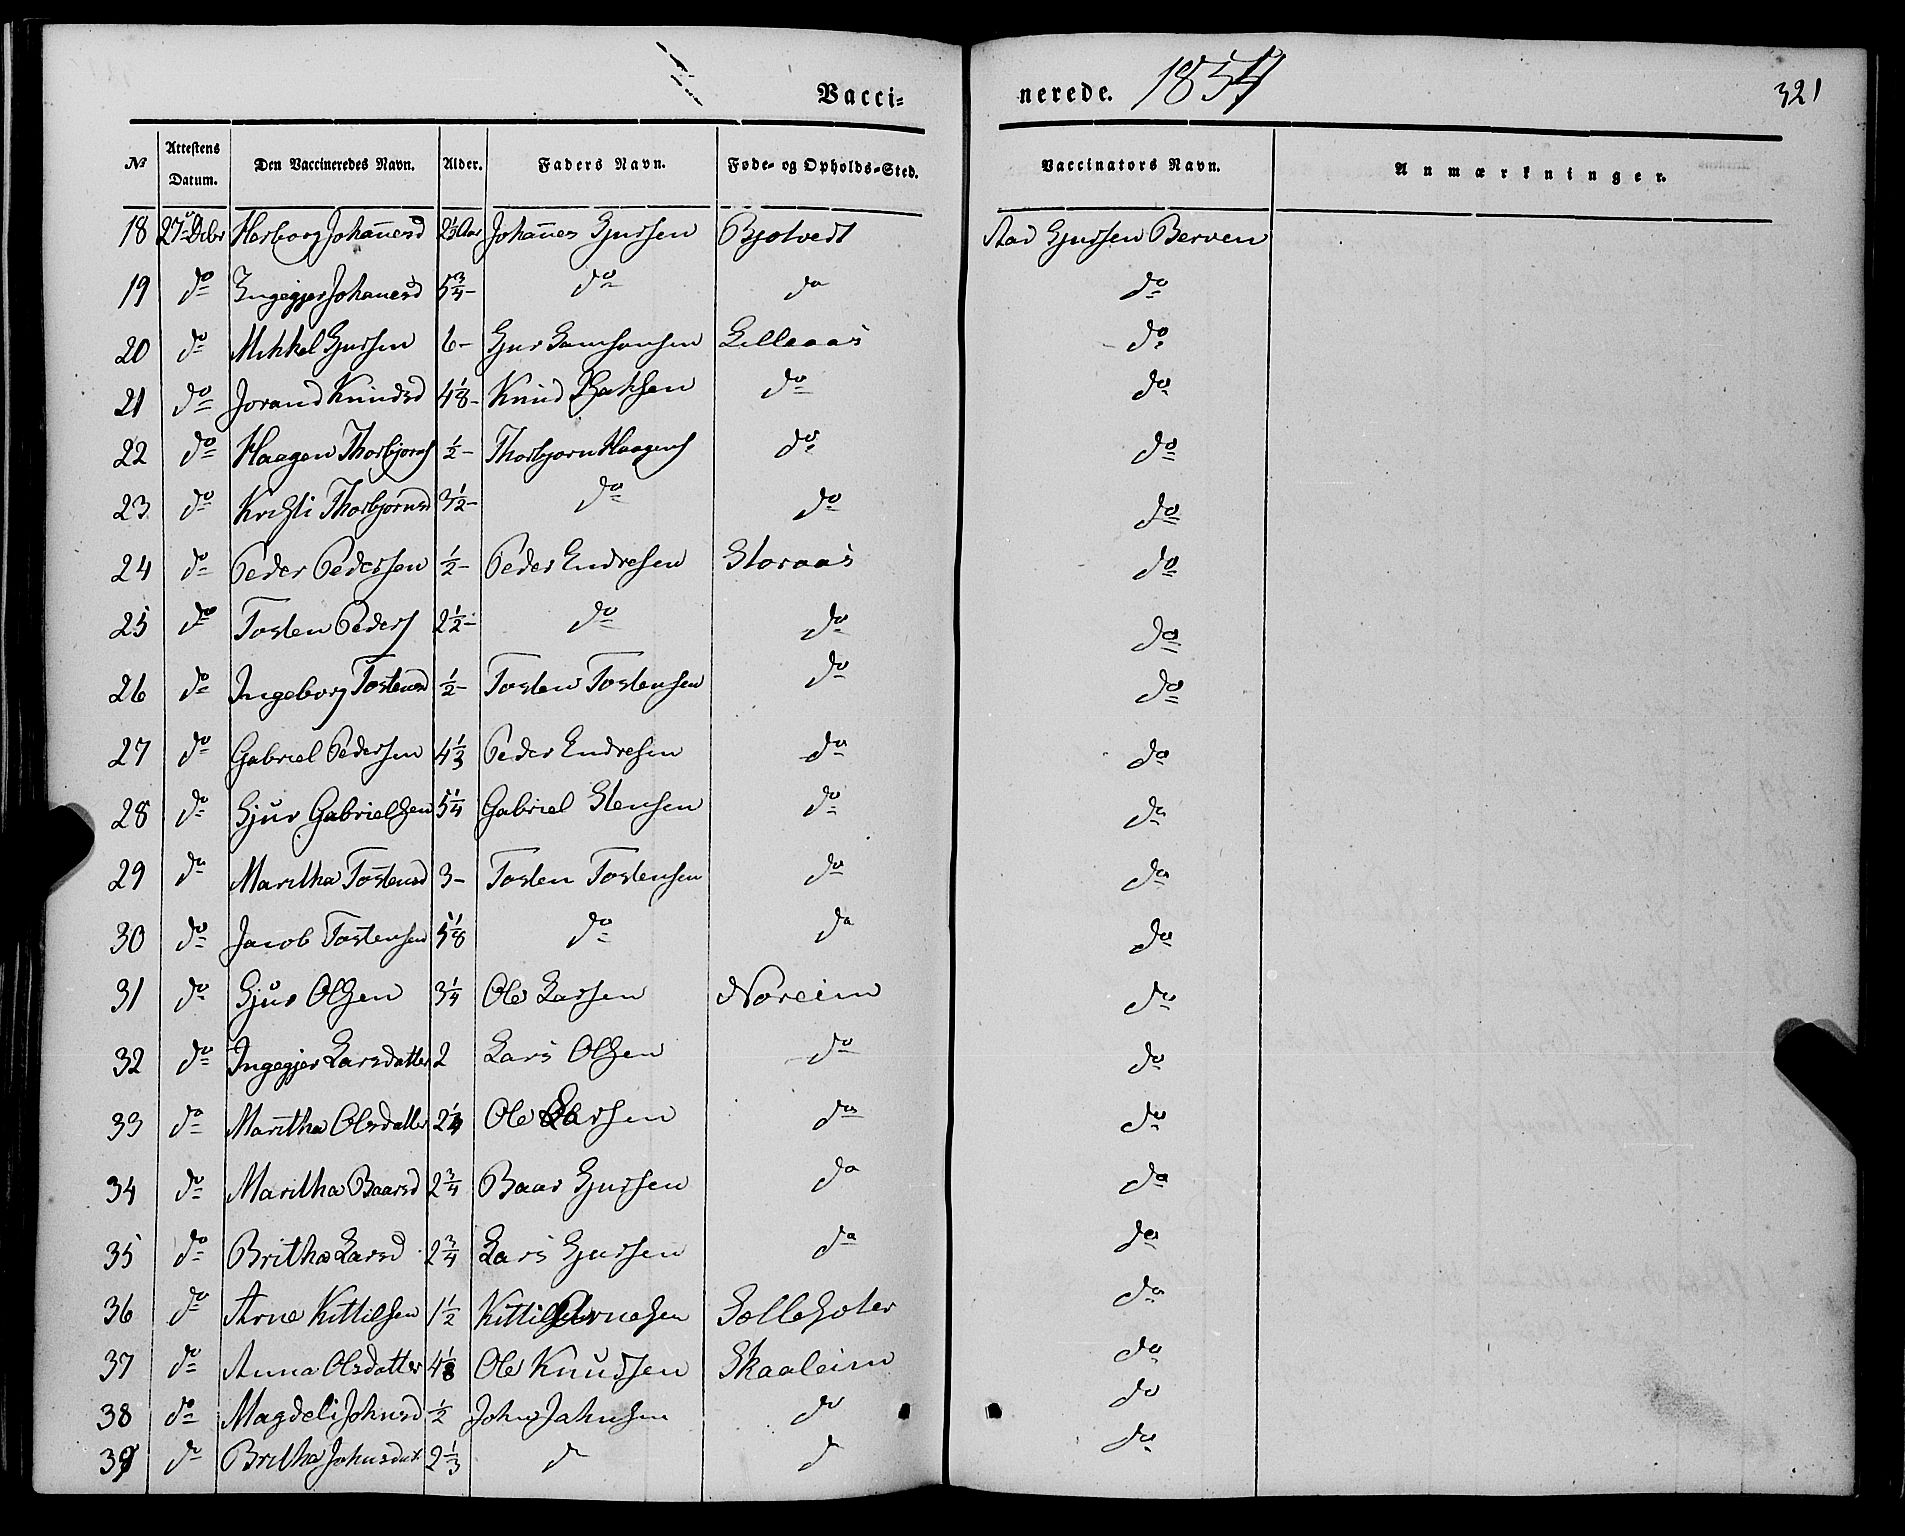 Vacci= nerede. 1854 321
No Attestens Datum. Den Vaccineredes Navn. Alder. Faders Navn. Føde- og Opholds-Sted. Vaccinators Navn. Anmærkninger.
18 27 Decbr Herborg Johañesd Johañes Gjursen Bjotvedt Aad Gjursen Berven
19 do Ingegjer Johanesd 5 3/4 - do do do
20 do Mikkel Gjursen 6 - Gjur Samsonsen Lilleaas do
21 do Jorand Knudsd 4 1/8 - Knud do do
22 do Haagen Thorbjørns 1/2 - Thorbjørn Haagens do do
23 do Kristi Thorbjørnsd 3 1/2 - do do do
24 do Peder Pedersen 1/2 - Peder Endresen Storaas do
25 do Tosten Peders 2 1/2 - do do do
26 do Ingeborg Tostensd 1/2 - Tosten Tostensen do do
27 do Gabriel Pedersen 4 1/3 Peder Endresen do do
28 do Gjur Gabrielsen 5 1/4 Gabriel Stensen do do
29 do Maritha Tostensd 3 - Tosten Tostensen do do
30 do Jacob Tostensen 5 1/8 do do do
31 do Gjur Olsen 3 1/4 Ole Larsen Noreim do
32 do Ingegjer Larsdatter 2 Lars Olsen do do
33 do Maritha Olsdatter 2 1/4 Ole Larsen do do
34 do Maritha Baarsd 2 3/4 Baar Gjursen do do
35 do Britha Larsd 2 3/4 Lars Gjursen do do
36 do Arne Kittilsen 1 1/2 Kittil Arnesen Sollesoter do
37 do Anna Olsdatter 4 1/8 Ole Knudsen Skaaleim do
38 do Magdeli Johnsd 1/2 John Johnsen do do
39 do Britha Johnsdat 2 1/3 d d do